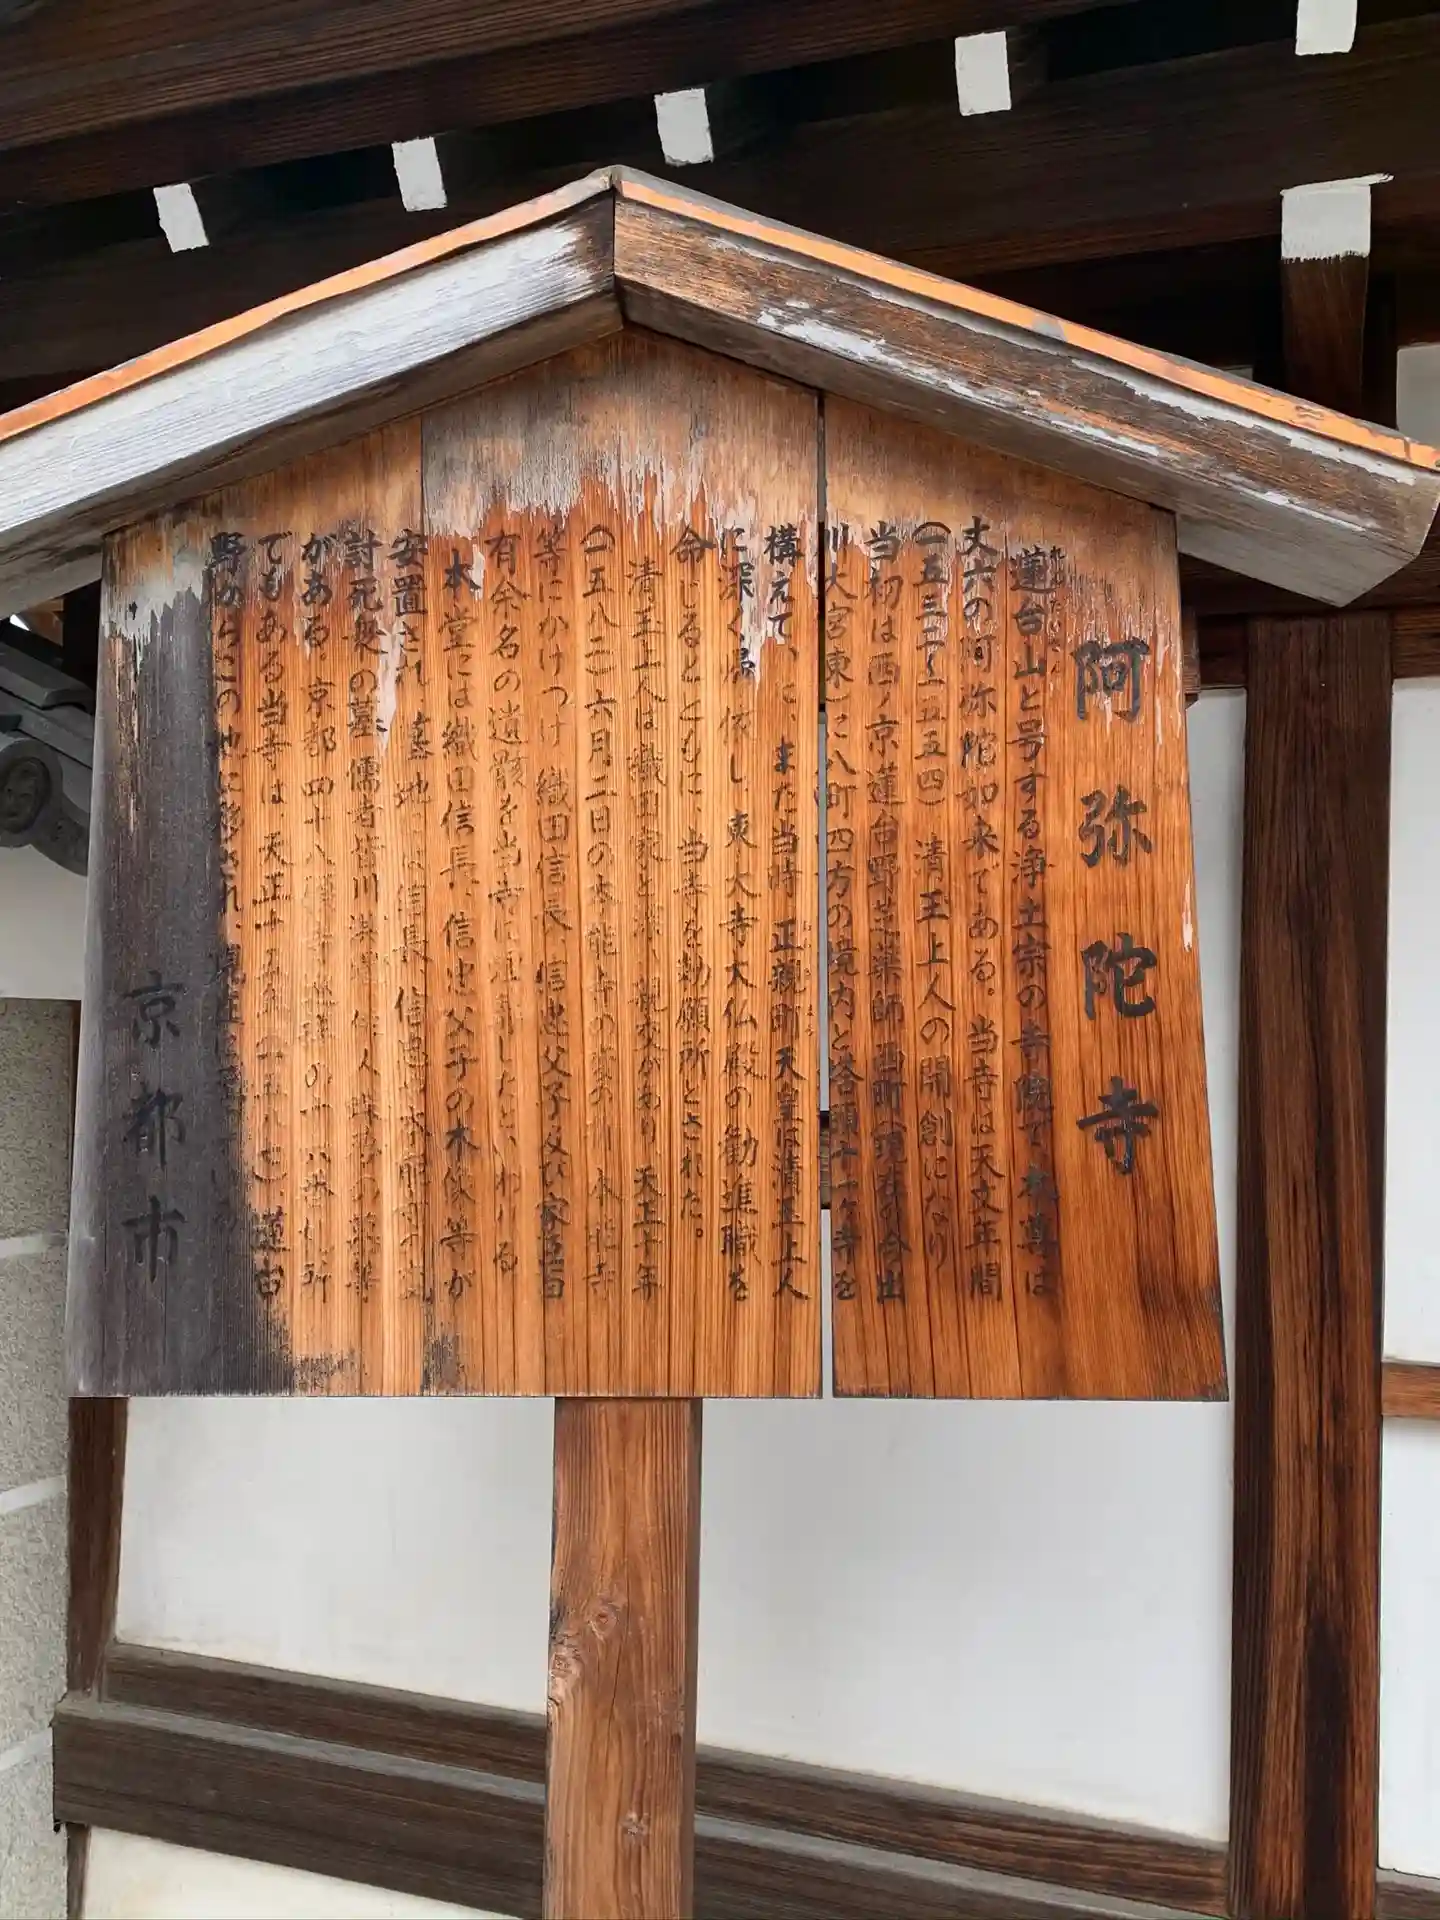 阿弥陀寺
蓮台山と号する浄土宗の寺院で本尊は
丈六の阿弥陀如来である。当寺は天文年間
(一五三二〜一五五四)清玉上人の開創になり
当初は西ノ京蓮台野芝薬師西町(現在の今出
川大宮東)に八町四方の境内と塔頭十一ヶ寺を
構えて、 また当時、正親町天皇は清玉上人
に深く帰依し、東大寺大仏殿の勧進職を
命じるとともに、当寺を勅願所とされた。
清玉上人は織田家と深い親交があり、天正十年
(一五八二)六月二日の本能寺の変の 本能寺
等にかけつけ 織田信長、信忠父子及び家臣百
有余名の遺骸を当寺に したといわれる
本堂には織田信長、信忠父子の木像等が
安置され、墓地には信長、信忠
討死 の墓 儒者皆川淇園 俳人
がある。京都四十八
でもある当寺は、天正十五年(一五八七)、蓮台
野からこの地に移され、現在に
京都市